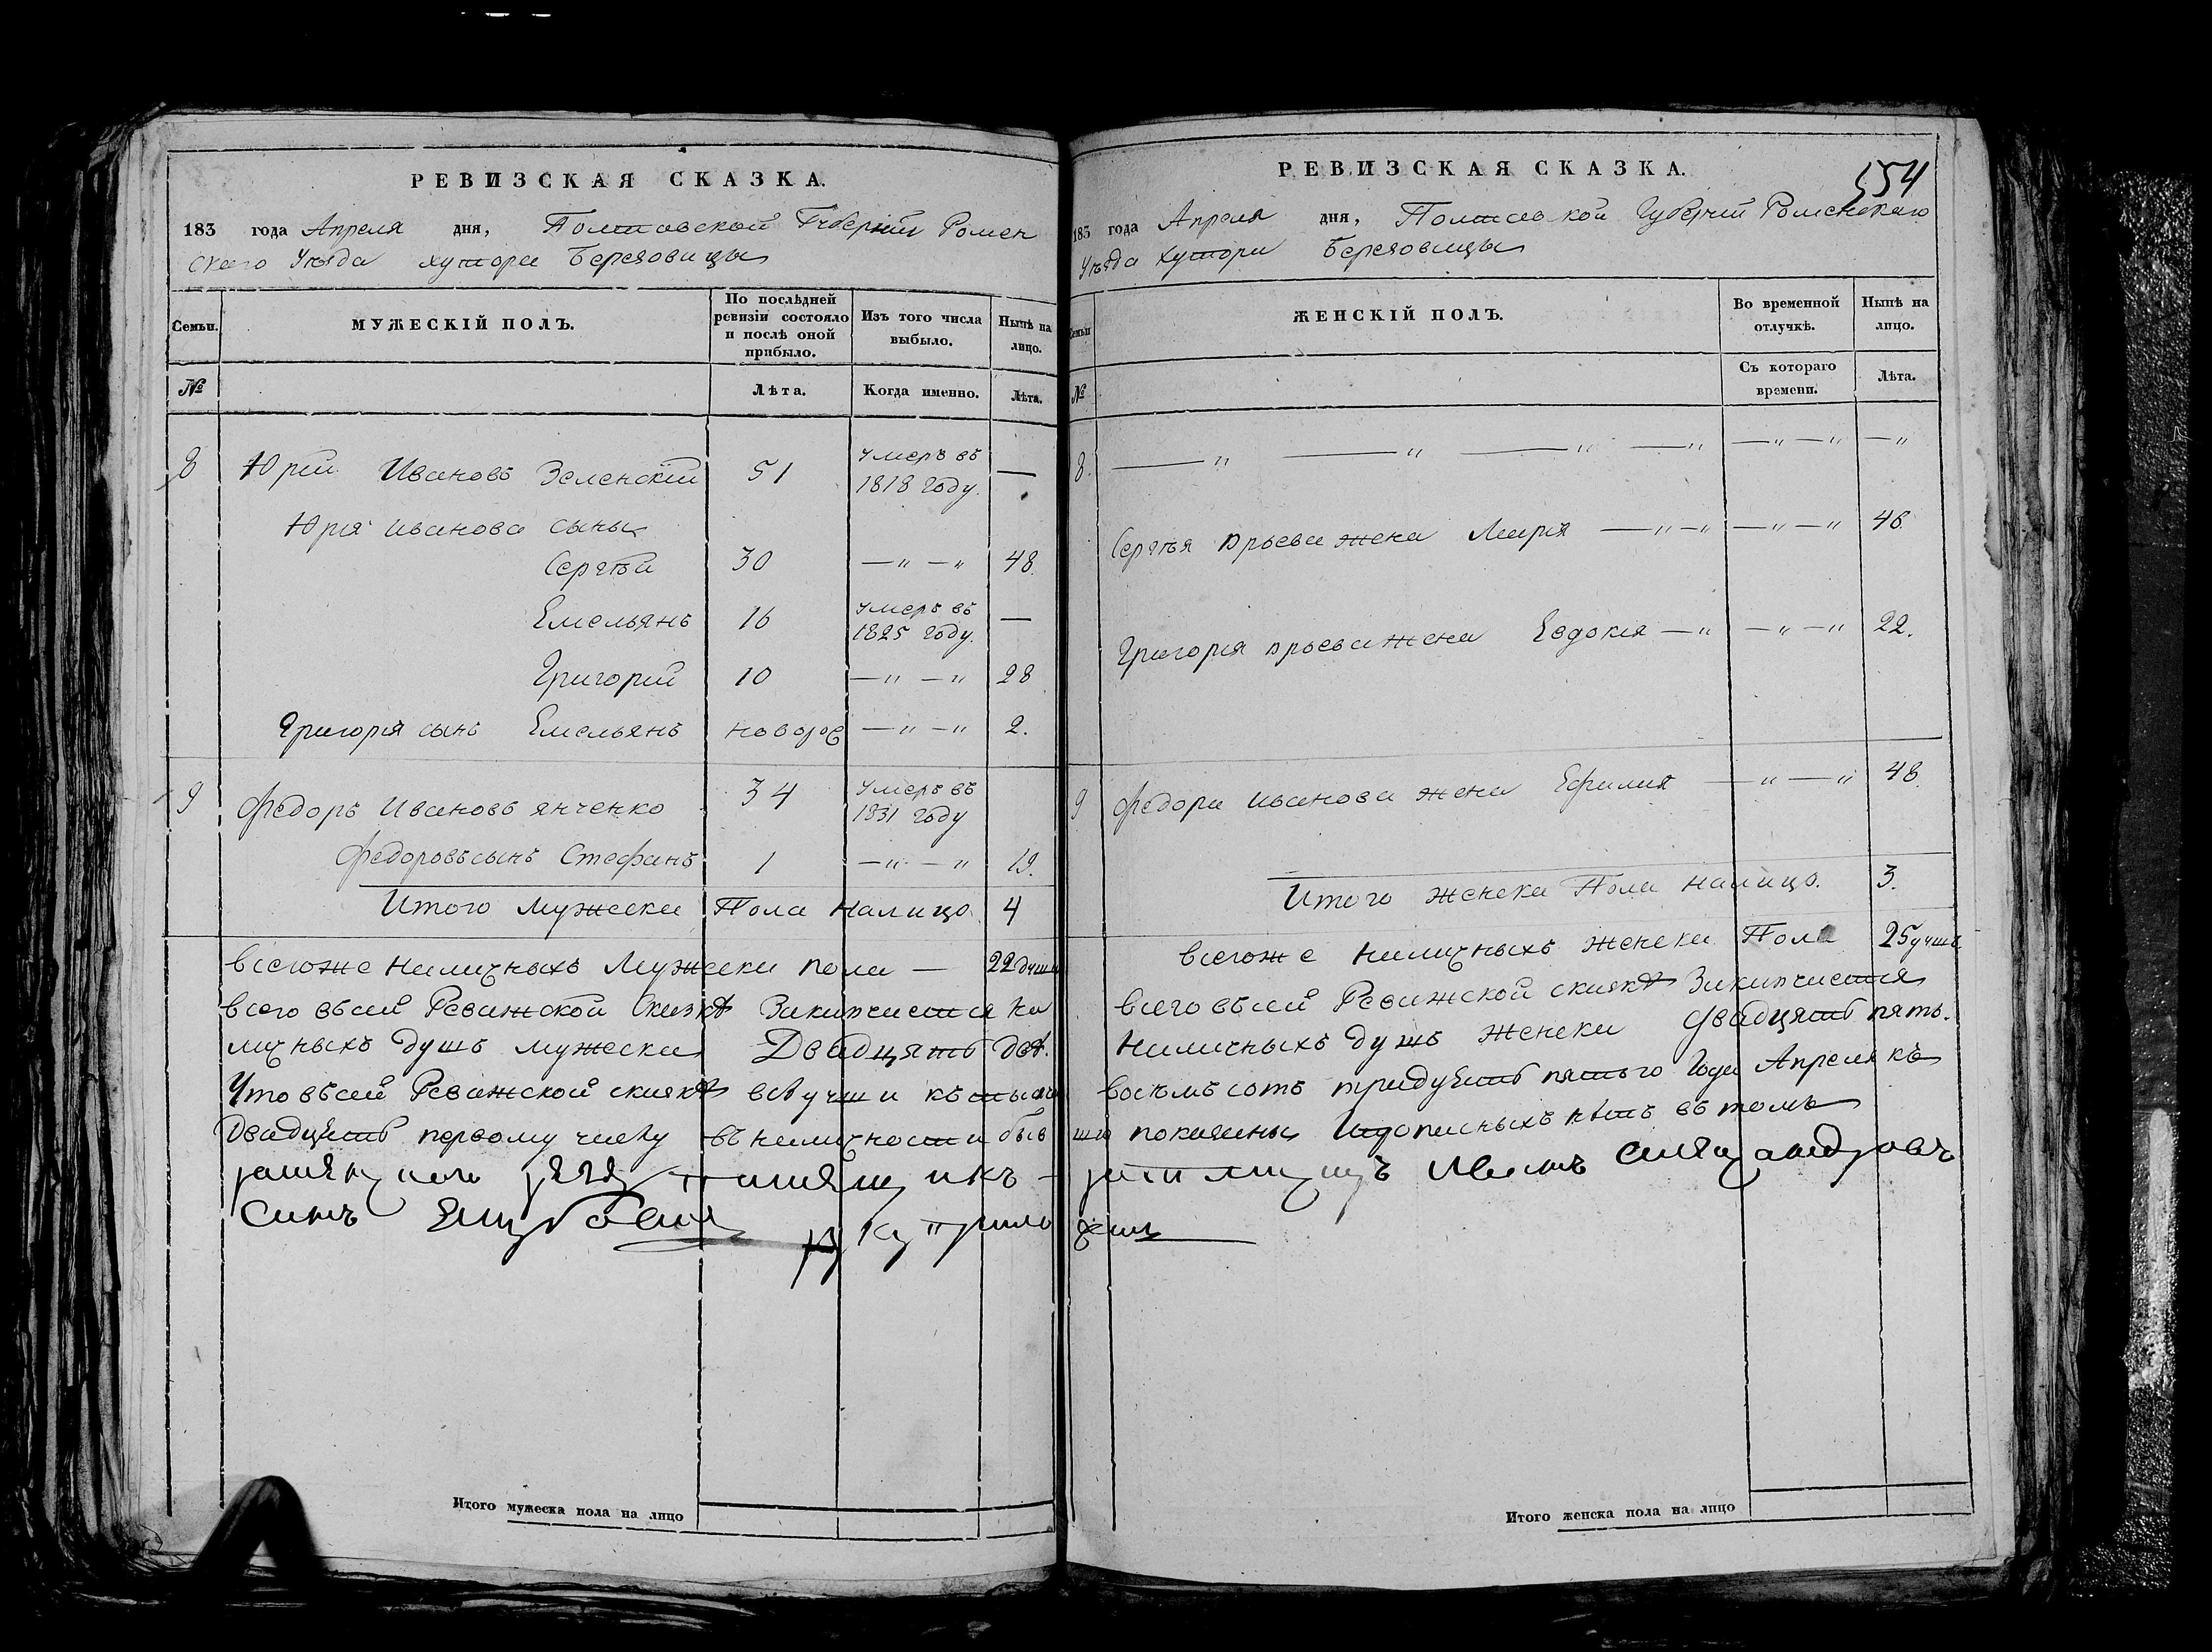 РЕВИЗСКАЯ СКАЗКА.
183 года Апреля дня, Полтавской Губернии Ромен
ского Уѣзда хутора Березовицы
Семьи.
МУЖЕСКІЙ ПОЛЪ.
По послѣдней ревизіи состояло и послѣ оной прибыло.
Изъ того числа выбыло.
Нынѣ на лицо.
№
Лѣта.
Когда именно.
Лѣта.
8 Юрій Ивановъ Зеленскій 51 умеръ въ 1818 году. —
Юрія Иванова сыны
Сергѣй 30 —"—" 48.
Емельянъ 16 умеръ въ 1825 году. —
Григорій 10 —"—" 28
Григорія сынъ Емельянъ новорож —"—" 2.
9 Федоръ Ивановъ Янченко 34 умеръ въ 1831 году
Федоровъ сынъ Стефанъ 1 —"—" 19.
Итого Мужеска Пола Налицо 4
всегоже наличныхъ Мужеска пола — 22 души
всего въсей Ревижской Сказкѣ Заключается на
личныхъ душъ мужеска Двадцать две.
Что въсей Ревижской сказкѣ всѣ души къ
Двадцать первому числу въ наличности быв
Итого мужеска пола на лицо
РЕВИЗСКАЯ СКАЗКА.
554
183 года Апреля дня, Полтавской Губерніи Роменского
Уѣзда Хутора Березовицы
Семьи
ЖЕНСКІЙ ПОЛЪ.
Во временной отлучкѣ.
Нынѣ на лицо.
№
Съ котораго времени.
Лѣта.
8. —" —" —" —" —"—" —"
Сергѣя Юрьева жена Марія —"—" —"—" 48.
Григорія Юрьева жена Евдокія —" —"—" 22.
9 Федора Иванова жена —"—" 48.
Итого женска Пола налицо. 3.
всегоже наличныхъ женска Пола 25 душъ
всего въсей Ревижской сказкѣ Заключается
наличныхъ душъ женска двадцать пять.
восемъ сотъ тридцать пятого Года Апреля къ
показаны въ томъ
Итого женска пола на лицо